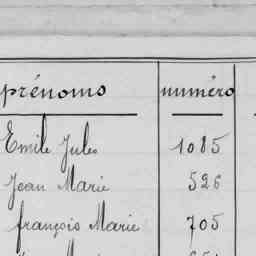 prénoms numéro
Emile Jules 1085
Jean Marie 526
françois Marie 705